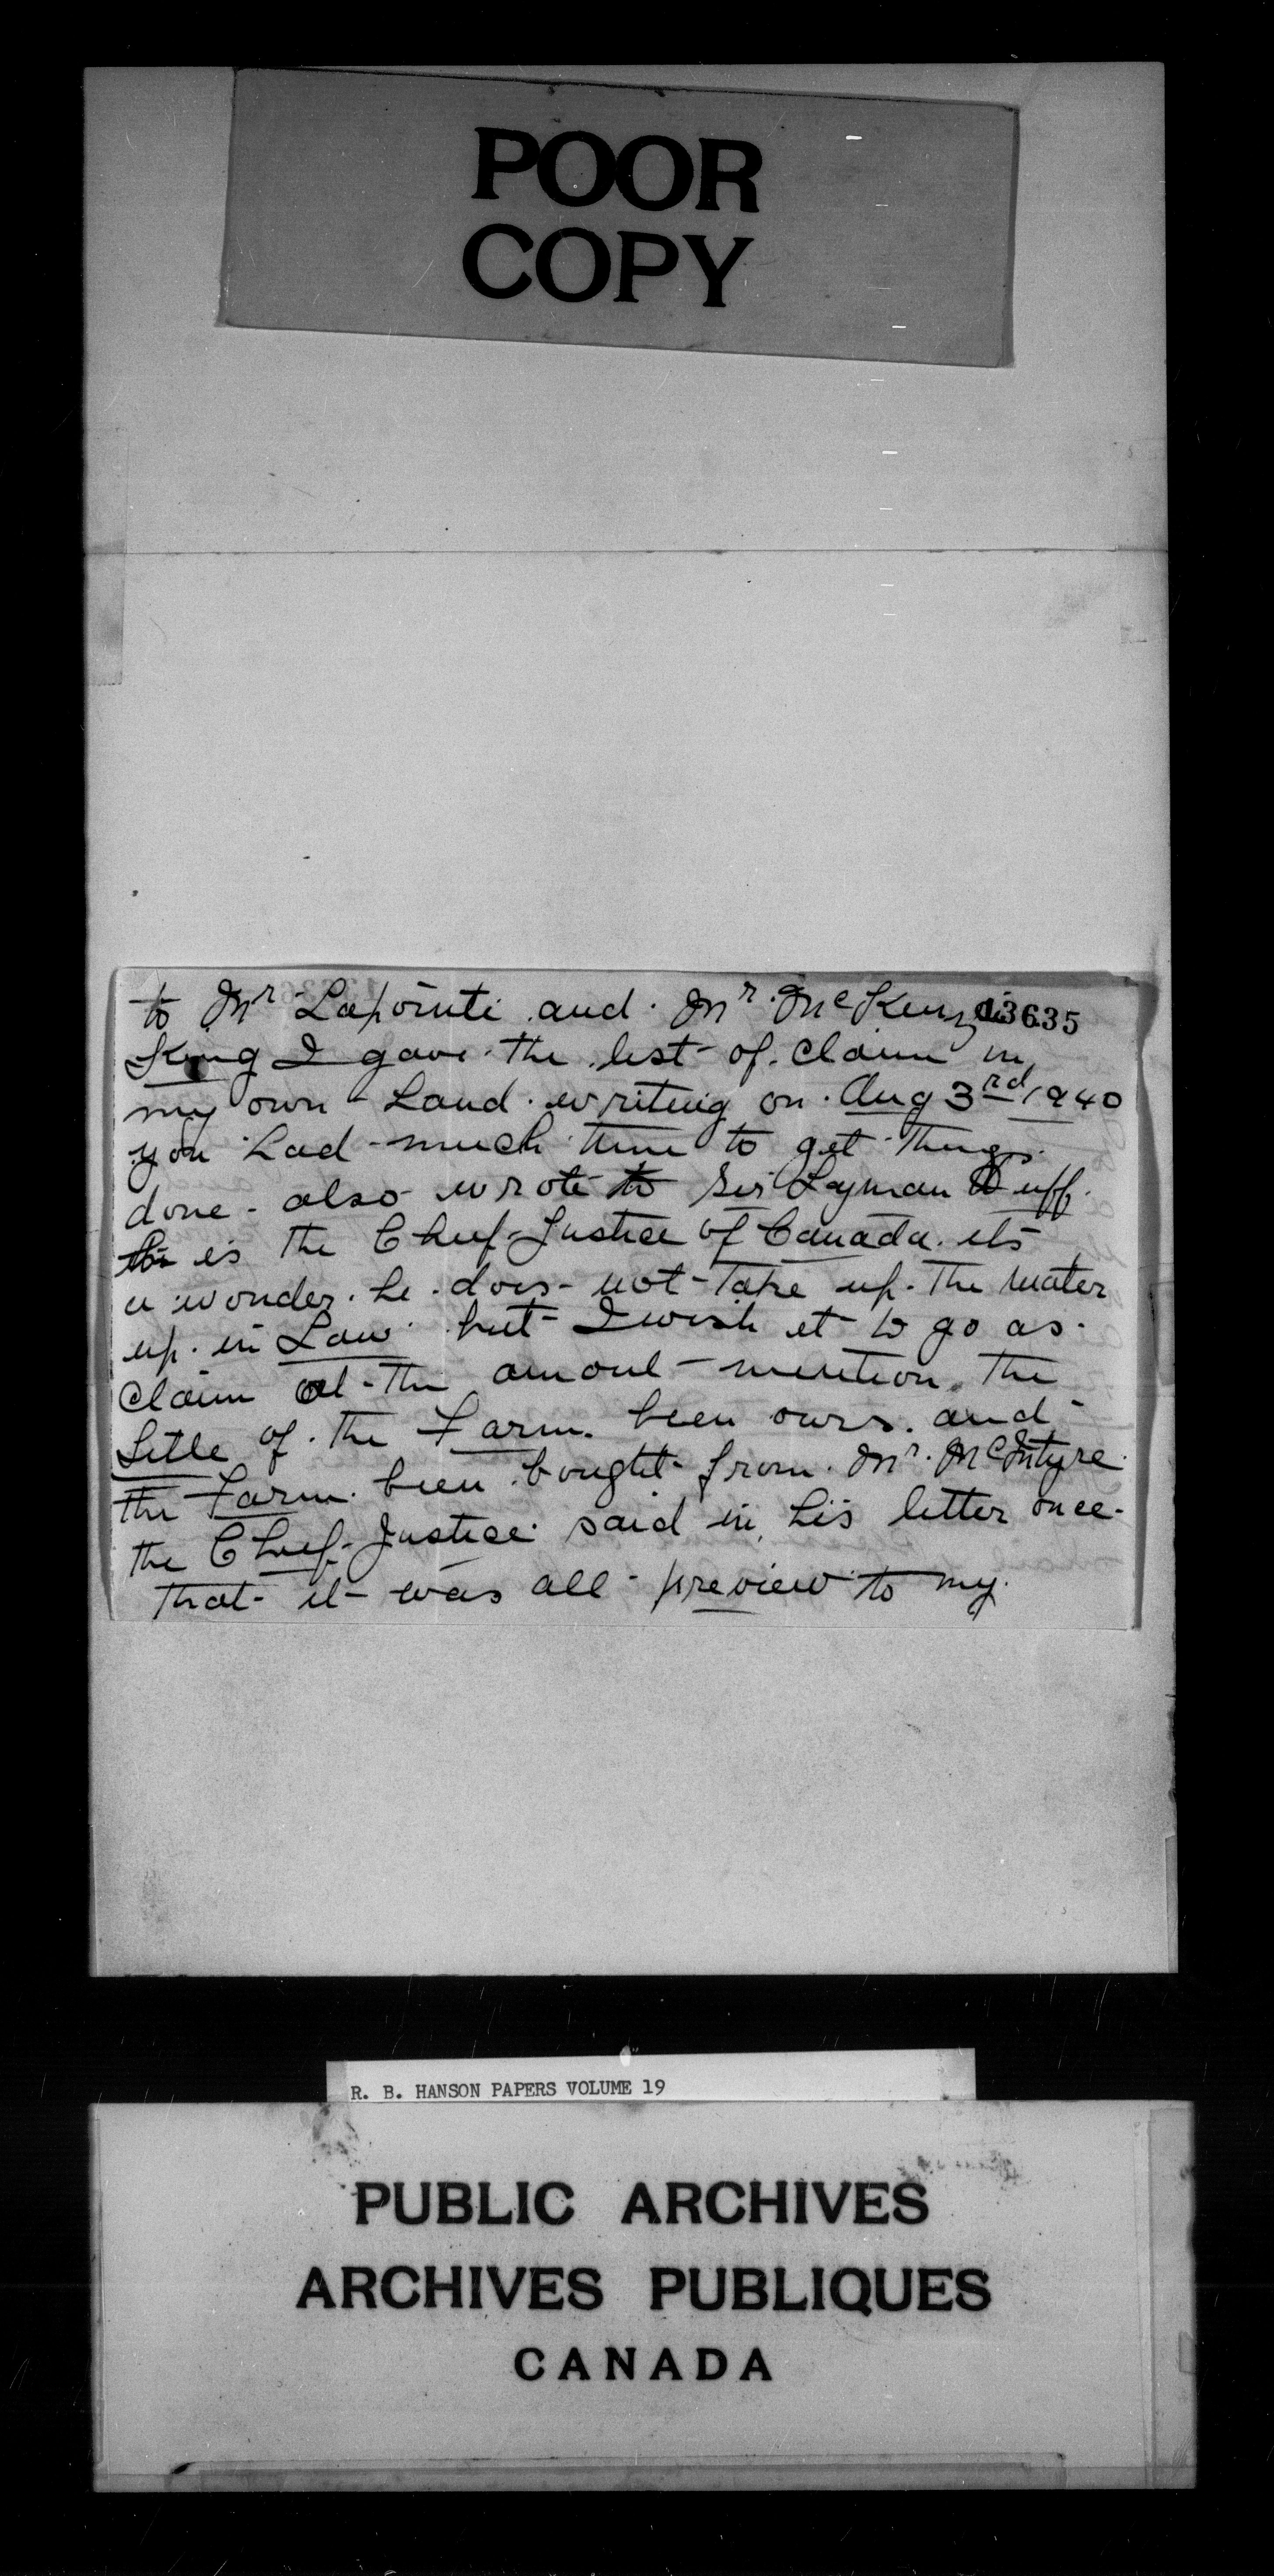 POOR
COPY
to Mr Lapointe and. Mr. McKenzie
13635
King I gave the list of claim in
my own hand writing on. Aug 3rd 1940
you had much time to get things.
done - also wrote to Sir Lyman Duff.
he is the Chief-Justice of Canada. its
a wonder. he. does - not - take up. the mater
up. in Law but I wish it to go as.
Claim at the amout - mention. the
title of. the Farm. been ours. and
the Farm. been bought from. Mr. McIntyre.
the Chief-Justice. said in, his letter once -
that - it - was all - preview to my.
R. B. HANSON PAPERS VOLUME 19
PUBLIC ARCHIVES
ARCHIVES PUBLIQUES
CANADA